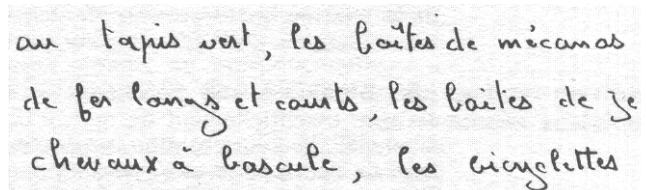 au tapis vert, les boîtes de mécanos
de fer longs et courts, les boites de je
chevaux à bascule, les bicyclettes